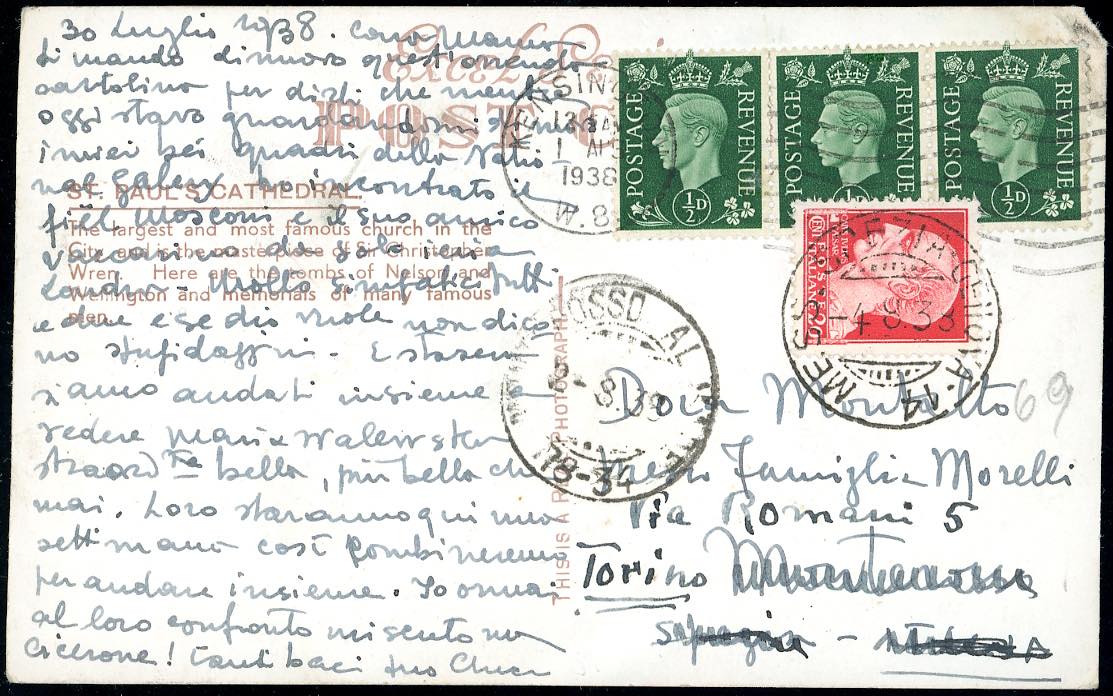 30 Luglio 1938. cara Mamma
ti mando di nuovo quest'orrenda
cartolina per dirti che mentre
oggi stavo guardandomi
i miei bei quadri della Natio-
nal Gallery ho incontrato il
figlio Mosconi e il suo amico
Vaccari
Londra - Molto simpatici tutti
e due e se dio vuole non dico
no stupidaggini - E stasera
siamo andati insieme a
vedere Maria Walewska
straord.ria bella, più bella che
mai. Loro staranno qui una
settimana così combineremo
per andare insieme. Io ormai
al loro confronto mi sento un
cicerone! tanti baci tuo
POST
ST. PAUL'S CATHEDRAL.
The largest and most famous church in the
City and is the masterpiece of Sir Christopher
Wren. Here are the tombs of Nelson and
Wellington and memorials of many famous
men.
THIS IS A REAL PHOTOGRAPH
KENSINGTON
1 AUG
1938
W.8
POSTAGE REVENUE
½D
POSTAGE REVENUE
½D
POSTAGE REVENUE
½D
POSTE
ITALIANE
20
SPEZIA GENOVA · 14
MESS
-4 8.38
ROSSO AL MARE
8.38
78-34
Dora Montalto
69
presso Famiglia Morelli
Via Romani 5
Torino
Monterosso
Spezia -